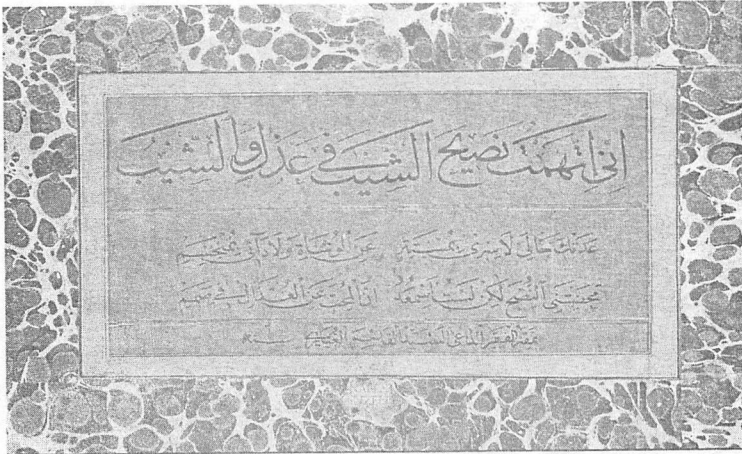 اِنِّي اتَّهَمْتُ نَصِيحَ الشَّيْبِ فِي عَذَلٍ وَالشَّيْبُ
عَدَتْكَ حَالِي لَا سِرِّي بِمُسْتَتِرٍ عَنِ الْوُشَاةِ وَلَا دَائِي بِمُنْحَسِمِ
مَحَضْتَنِي النُّصْحَ لٰكِنْ لَسْتُ أَسْمَعُهُ اِنَّ الْمُحِبَّ عَنِ الْعُذَّالِ فِي صَمَمِ
نمقه الفقير الداعي السيد